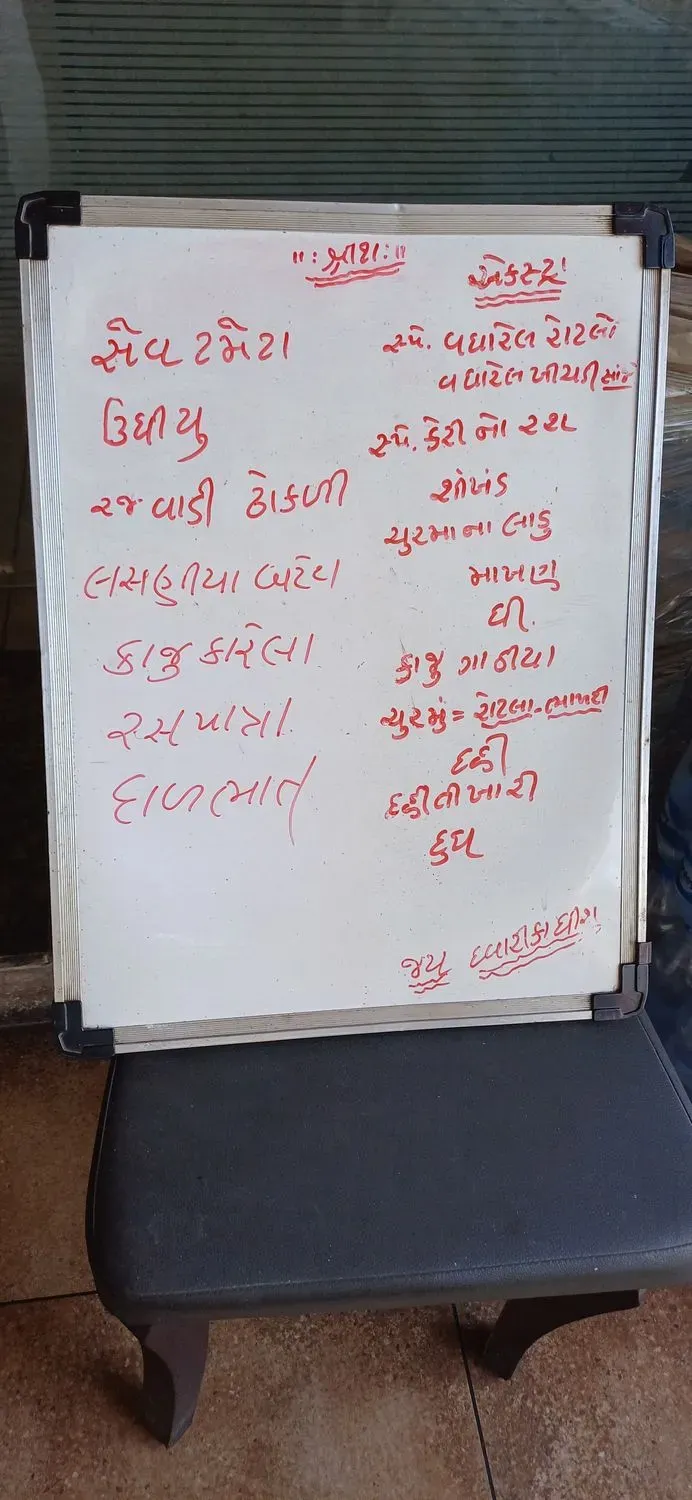 એકસ્ટ્રા
સેવ ટમેટા
ઉધીયુ
રજવાડી ઢોકળી
લસણીયા બટેટા
કાજુ કારેલા
રસ પાત્રા
દાળ ભાત
સ્પે. વઘારેલ રોટલો
વઘારેલ ખીચડી સાંજે
સ્પે. કેરી નો રસ
શીખંડ
ચુરમા ના લાડુ
માખણ
ઘી.
કાજુ ગાઠીયા
ચુરમું = રોટલા - ભાખરી
દહીં
દહીં તીખારી
દુધ
જય દ્વારીકાધીશ